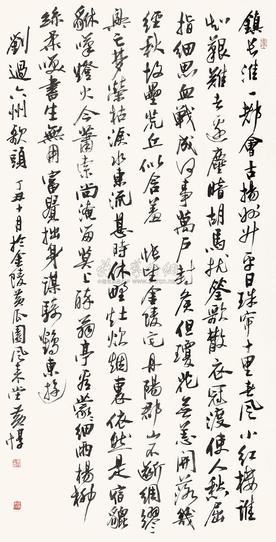 鎮長淮一都會古揚州升平日珠帘十里春風小紅樓誰
知艱難去邊塵暗胡馬扰笙歌散衣冠渡使人愁屈
指細思血戰成何事萬戶封侯但瓊花無恙開落幾
經秋故壘荒丘似含羞 悵望金陵宅丹陽郡山不斷綢繆
興亡夢榮枯淚水東流甚時休野灶炊烟裏依然是宿貔
貅嘆燈火今蕭索尚淹留莫上醉翁亭看濛細雨楊柳
絲柔笑書生無用富貴拙身謀騎鶴東遊
劉過六州歌頭 丁丑十月於金陵黃瓜園風來堂黃惇